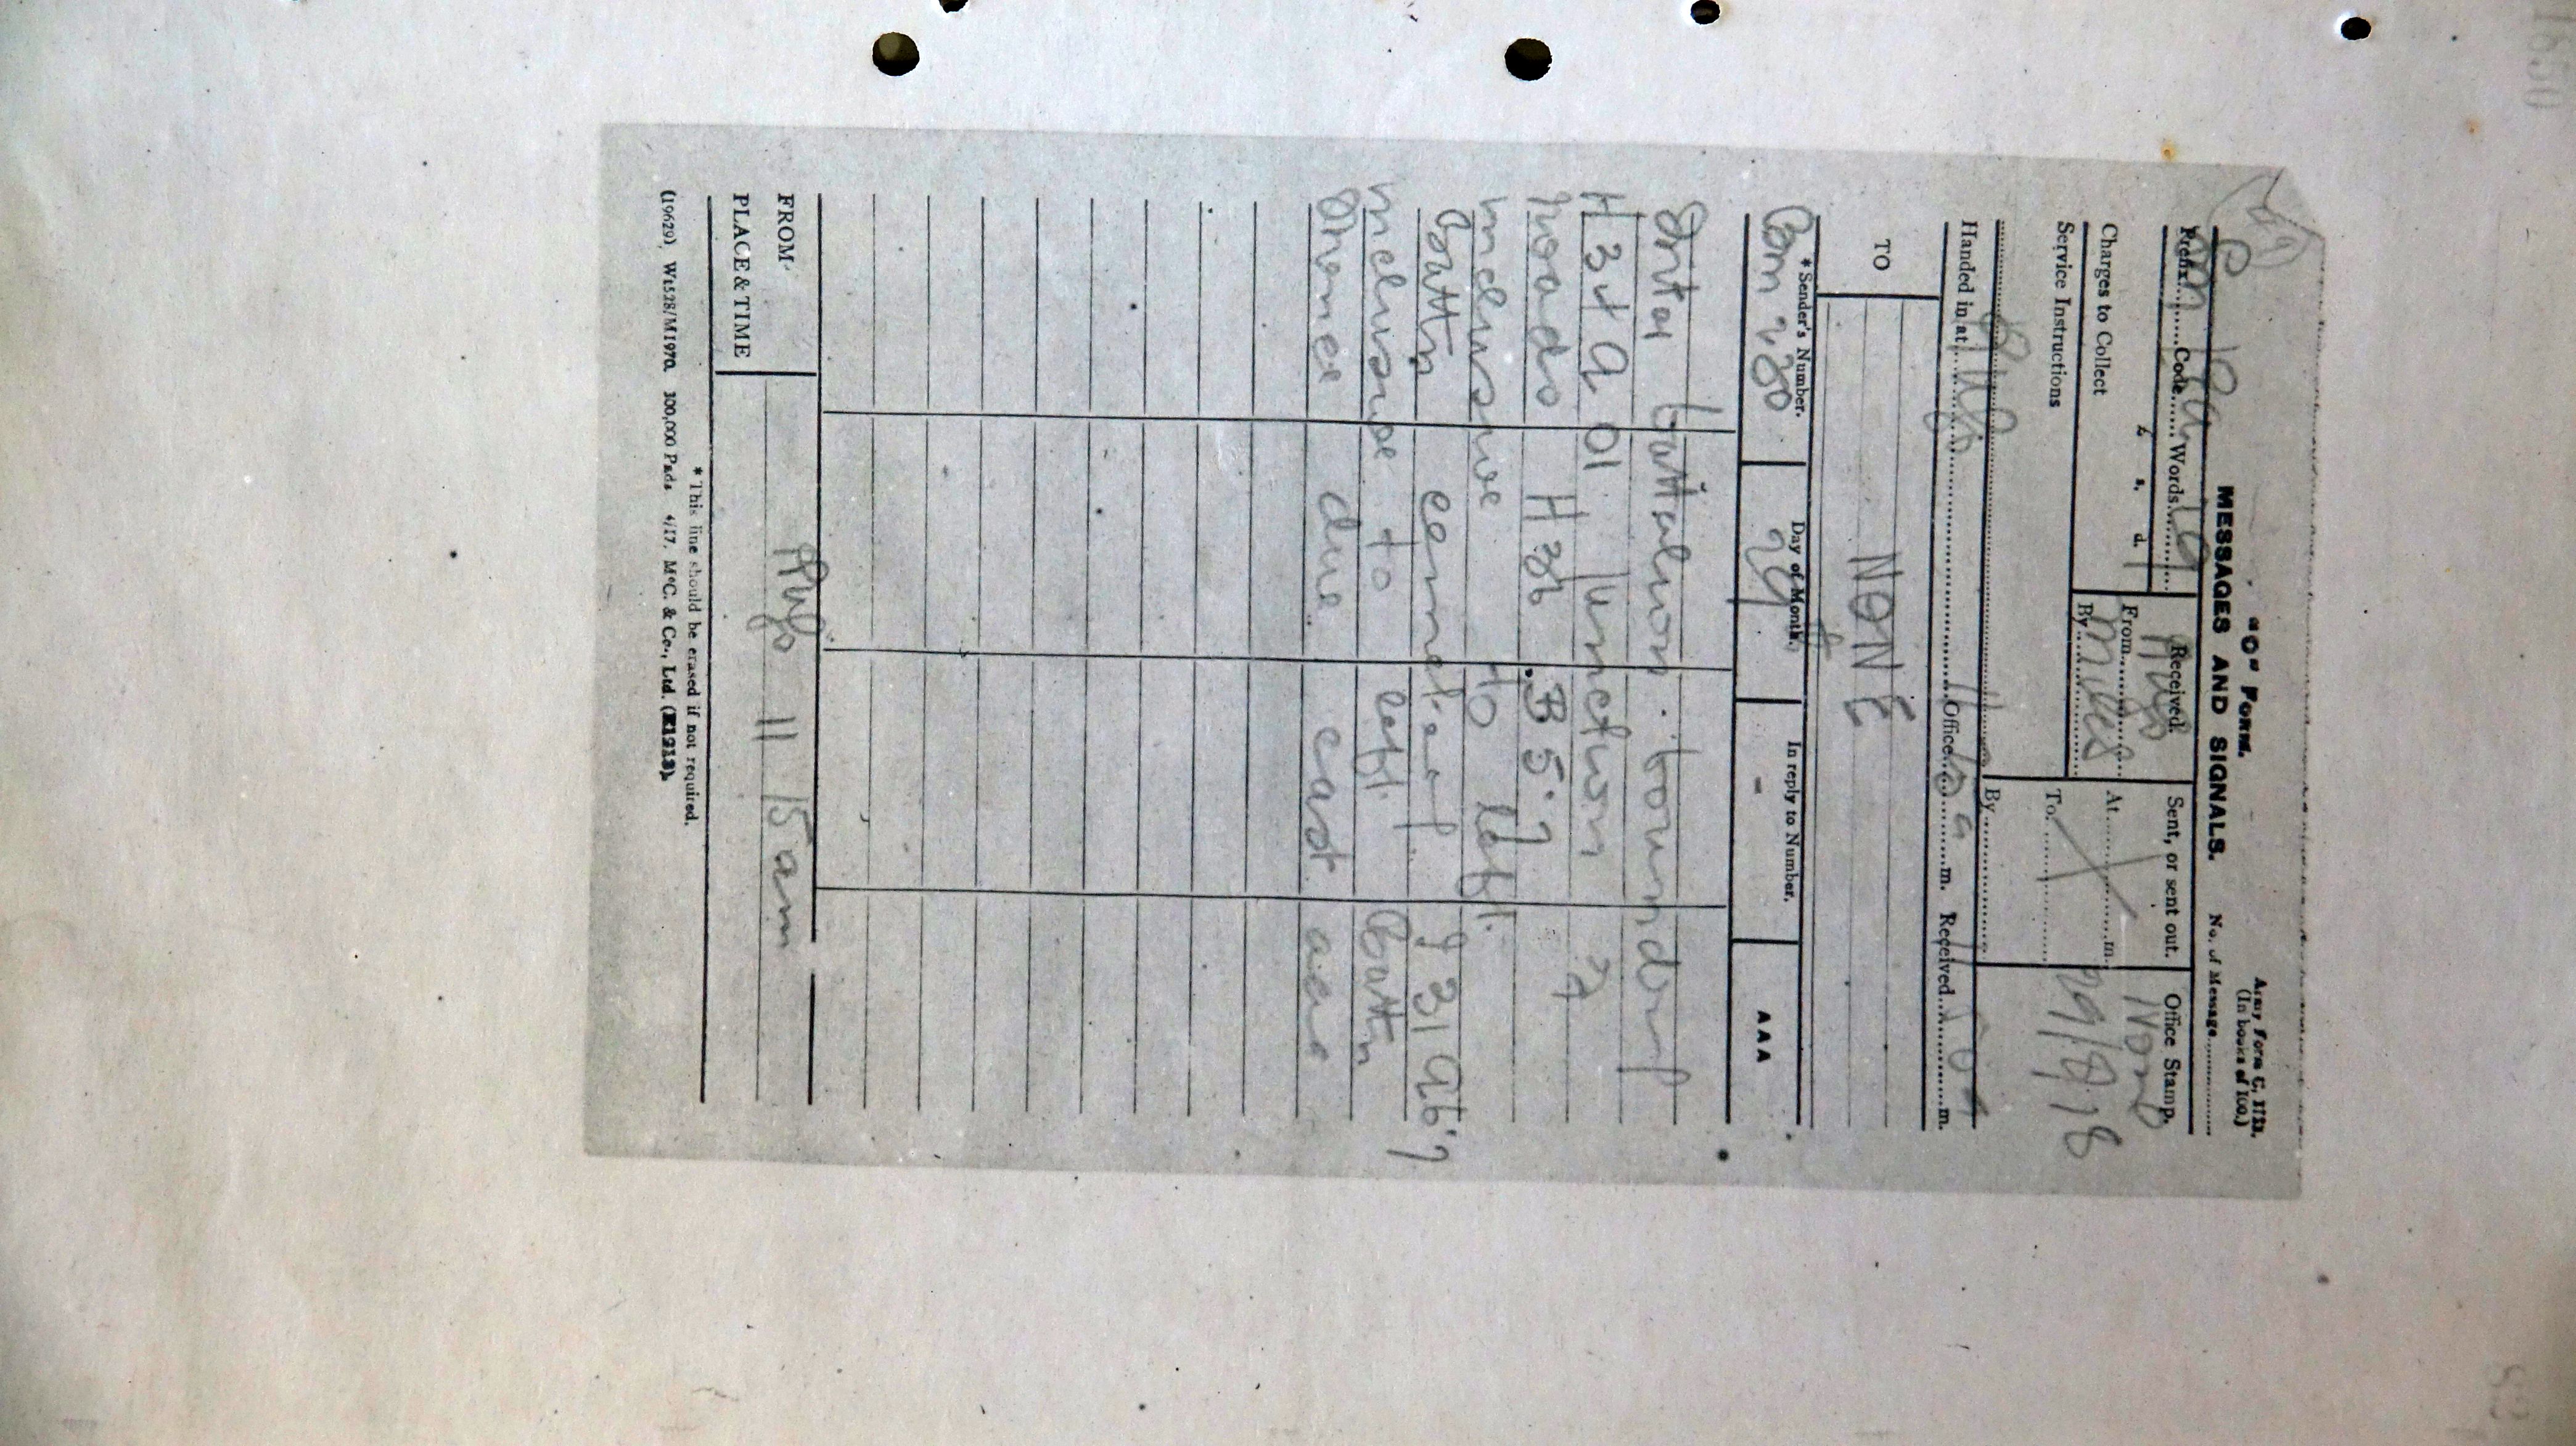 "C" FORM.
Army Form C. 2121.
(In books of 100.)
MESSAGES AND SIGNALS.
No. of Message............
Prefix......Code......Words 79
Charges to Collect
£ s. d.
Service Instructions
Received.
From Hugo
By Miles
Sent, or sent out.
At............m.
To............
By............
Office Stamp.
29/9/18
Handed in at Hugo Office............m. Received............m.
TO
NONE
*Sender's Number.
Day of Month.
In reply to Number.
AAA
Bm 280
29
-
Inter battalion boundary
H 31 a 01 junction
roads H 36 B 5.7
inclusive to left
Battn cemetery G 31 a 6.7
inclusive to left Battn
thence due east aaa
FROM
PLACE & TIME
Hugo 11 15 am
* This line should be erased if not required.
(19629). Wt528/M1970. 300,000 Pads 4/17. McC. & Co., Ltd. (E1213).
1650
83